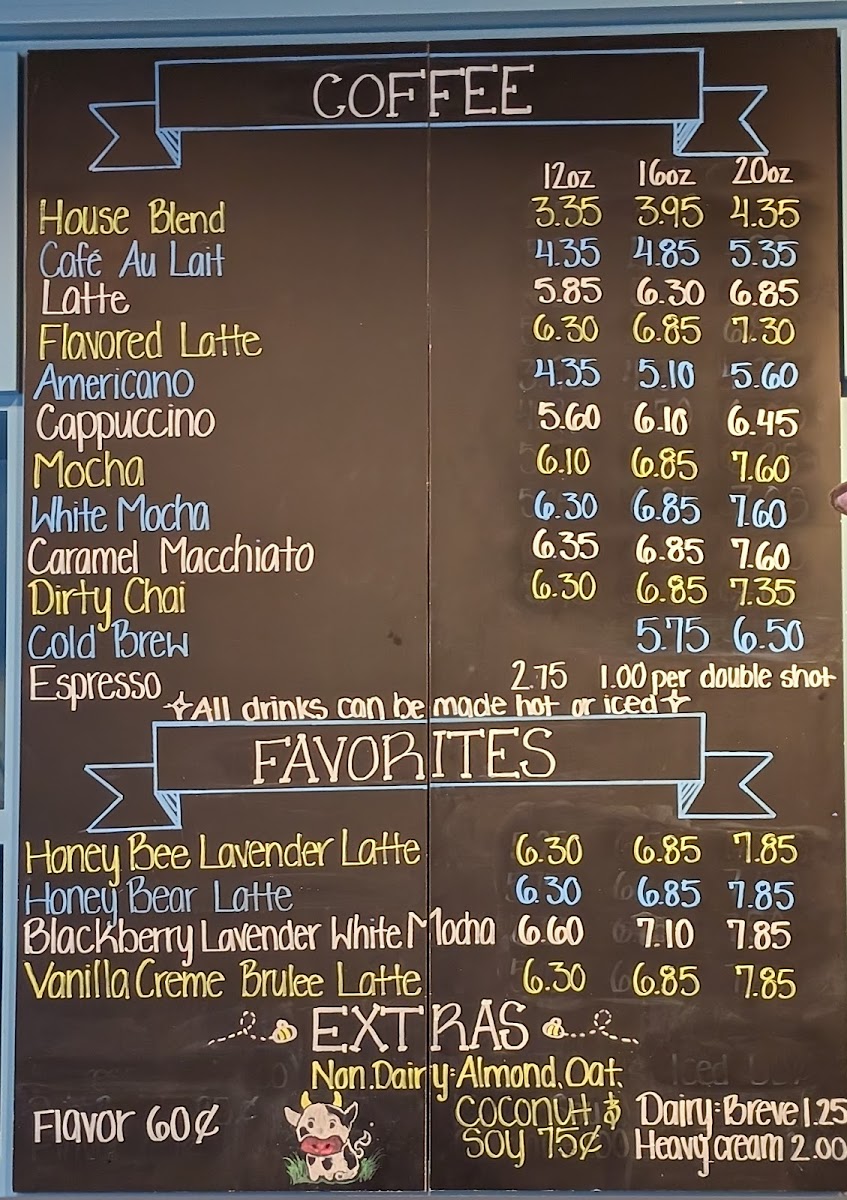 COFFEE
12oz 16oz 20oz
House Blend 3.35 3.95 4.35
Café Au Lait 4.35 4.85 5.35
Latte 5.85 6.30 6.85
Flavored Latte 6.30 6.85 7.30
Americano 4.35 5.10 5.60
Cappuccino 5.60 6.10 6.45
Mocha 6.10 6.85 7.60
White Mocha 6.30 6.85 7.60
Caramel Macchiato 6.35 6.85 7.60
Dirty Chai 6.30 6.85 7.35
Cold Brew 5.75 6.50
Espresso 2.75 1.00 per double shot
All drinks can be made hot or iced
FAVORITES
Honey Bee Lavender Latte 6.30 6.85 7.85
Honey Bear Latte 6.30 6.85 7.85
Blackberry Lavender White Mocha 6.60 7.10 7.85
Vanilla Creme Brulee Latte 6.30 6.85 7.85
EXTRAS
Flavor 60¢
Non.Dairy: Almond, Oat,
Coconut &
Soy 75¢
Dairy: Breve 1.25
Heavy cream 2.00